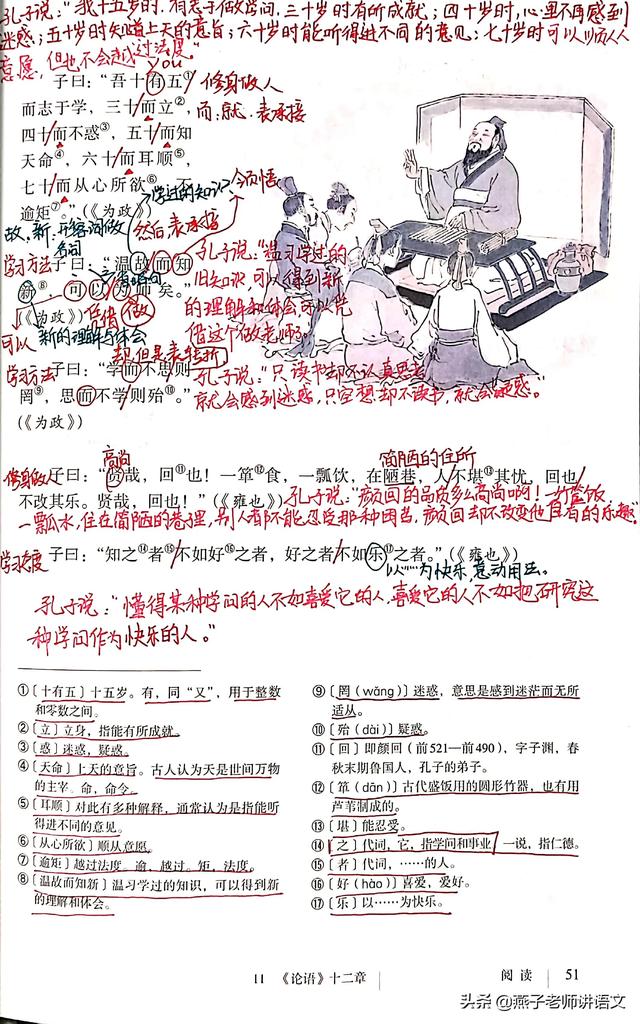 孔子说:"我十五岁时,有志于做学问,三十岁时有所成就;四十岁时,心里不再感到
迷惑;五十岁时知道上天的意旨;六十岁时能听得进不同的意见;七十岁时可以顺从人
意愿,但也不会越过法度。"
you
子曰:"吾十有五①
修身做人
而志于学,三十而立②,
而:就.表承接
四十而不惑③,五十而知
天命④,六十而耳顺⑤,
七十而从心所欲⑥,不
逾矩⑦。"(《为政》)
学过的知识
领悟
故,新:形容词做
名词
然后表承接
学习方法
子曰:"温故而知
新⑧,可以为师矣。"
(《为政》)
凭借
做
可以
新的理解与体会
孔子说:"温习学过的
旧知识,可以得到新
的理解和体会可以凭
借这个做老师了。
却但是表转折
学习方法
子曰:"学而不思则
罔⑨,思而不学则殆⑩。"
(《为政》)
孔子说:"只读书却不认真思考
就会感到迷惑,只空想却不读书,就会疑惑。"
高尚
简陋的住所
修身做人
子曰:"贤哉,回⑪也!一箪⑫食,一瓢饮,在陋巷,人不堪⑬其忧,回也
不改其乐。贤哉,回也!"(《雍也》)
孔子说:"颜回的品质多么高尚啊!一竹筐饭,
一瓢水,住在简陋的巷子里,别人都不能忍受那种困苦,颜回却不改变他自有的乐趣"
学习态度
子曰:"知之⑭者⑮不如好⑯之者,好之者不如乐⑰之者。"(《雍也》)
以……为快乐,意动用法。
孔子说:"懂得某种学问的人不如喜爱它的人,喜爱它的人不如把研究这
种学问作为快乐的人。"
①〔十有五〕十五岁。有,同"又",用于整数
和零数之间。
②〔立〕立身,指能有所成就。
③〔惑〕迷惑,疑惑。
④〔天命〕上天的意旨。古人认为天是世间万物
的主宰。命,命令。
⑤〔耳顺〕对此有多种解释,通常认为是指能听
得进不同的意见。
⑥〔从心所欲〕顺从意愿。
⑦〔逾矩〕越过法度。逾,越过。矩,法度。
⑧〔温故而知新〕温习学过的知识,可以得到新
的理解和体会。
⑨〔罔(wǎng)〕迷惑,意思是感到迷茫而无所
适从。
⑩〔殆(dài)〕疑惑。
⑪〔回〕即颜回(前521—前490),字子渊,春
秋末期鲁国人,孔子的弟子。
⑫〔箪(dān)〕古代盛饭用的圆形竹器,也有用
芦苇制成的。
⑬〔堪〕能忍受。
⑭〔之〕代词,它,指学问和事业。一说,指仁德。
⑮〔者〕代词,……的人。
⑯〔好(hào)〕喜爱,爱好。
⑰〔乐〕以……为快乐。
11 《论语》十二章
阅读 51
头条@燕子老师讲语文